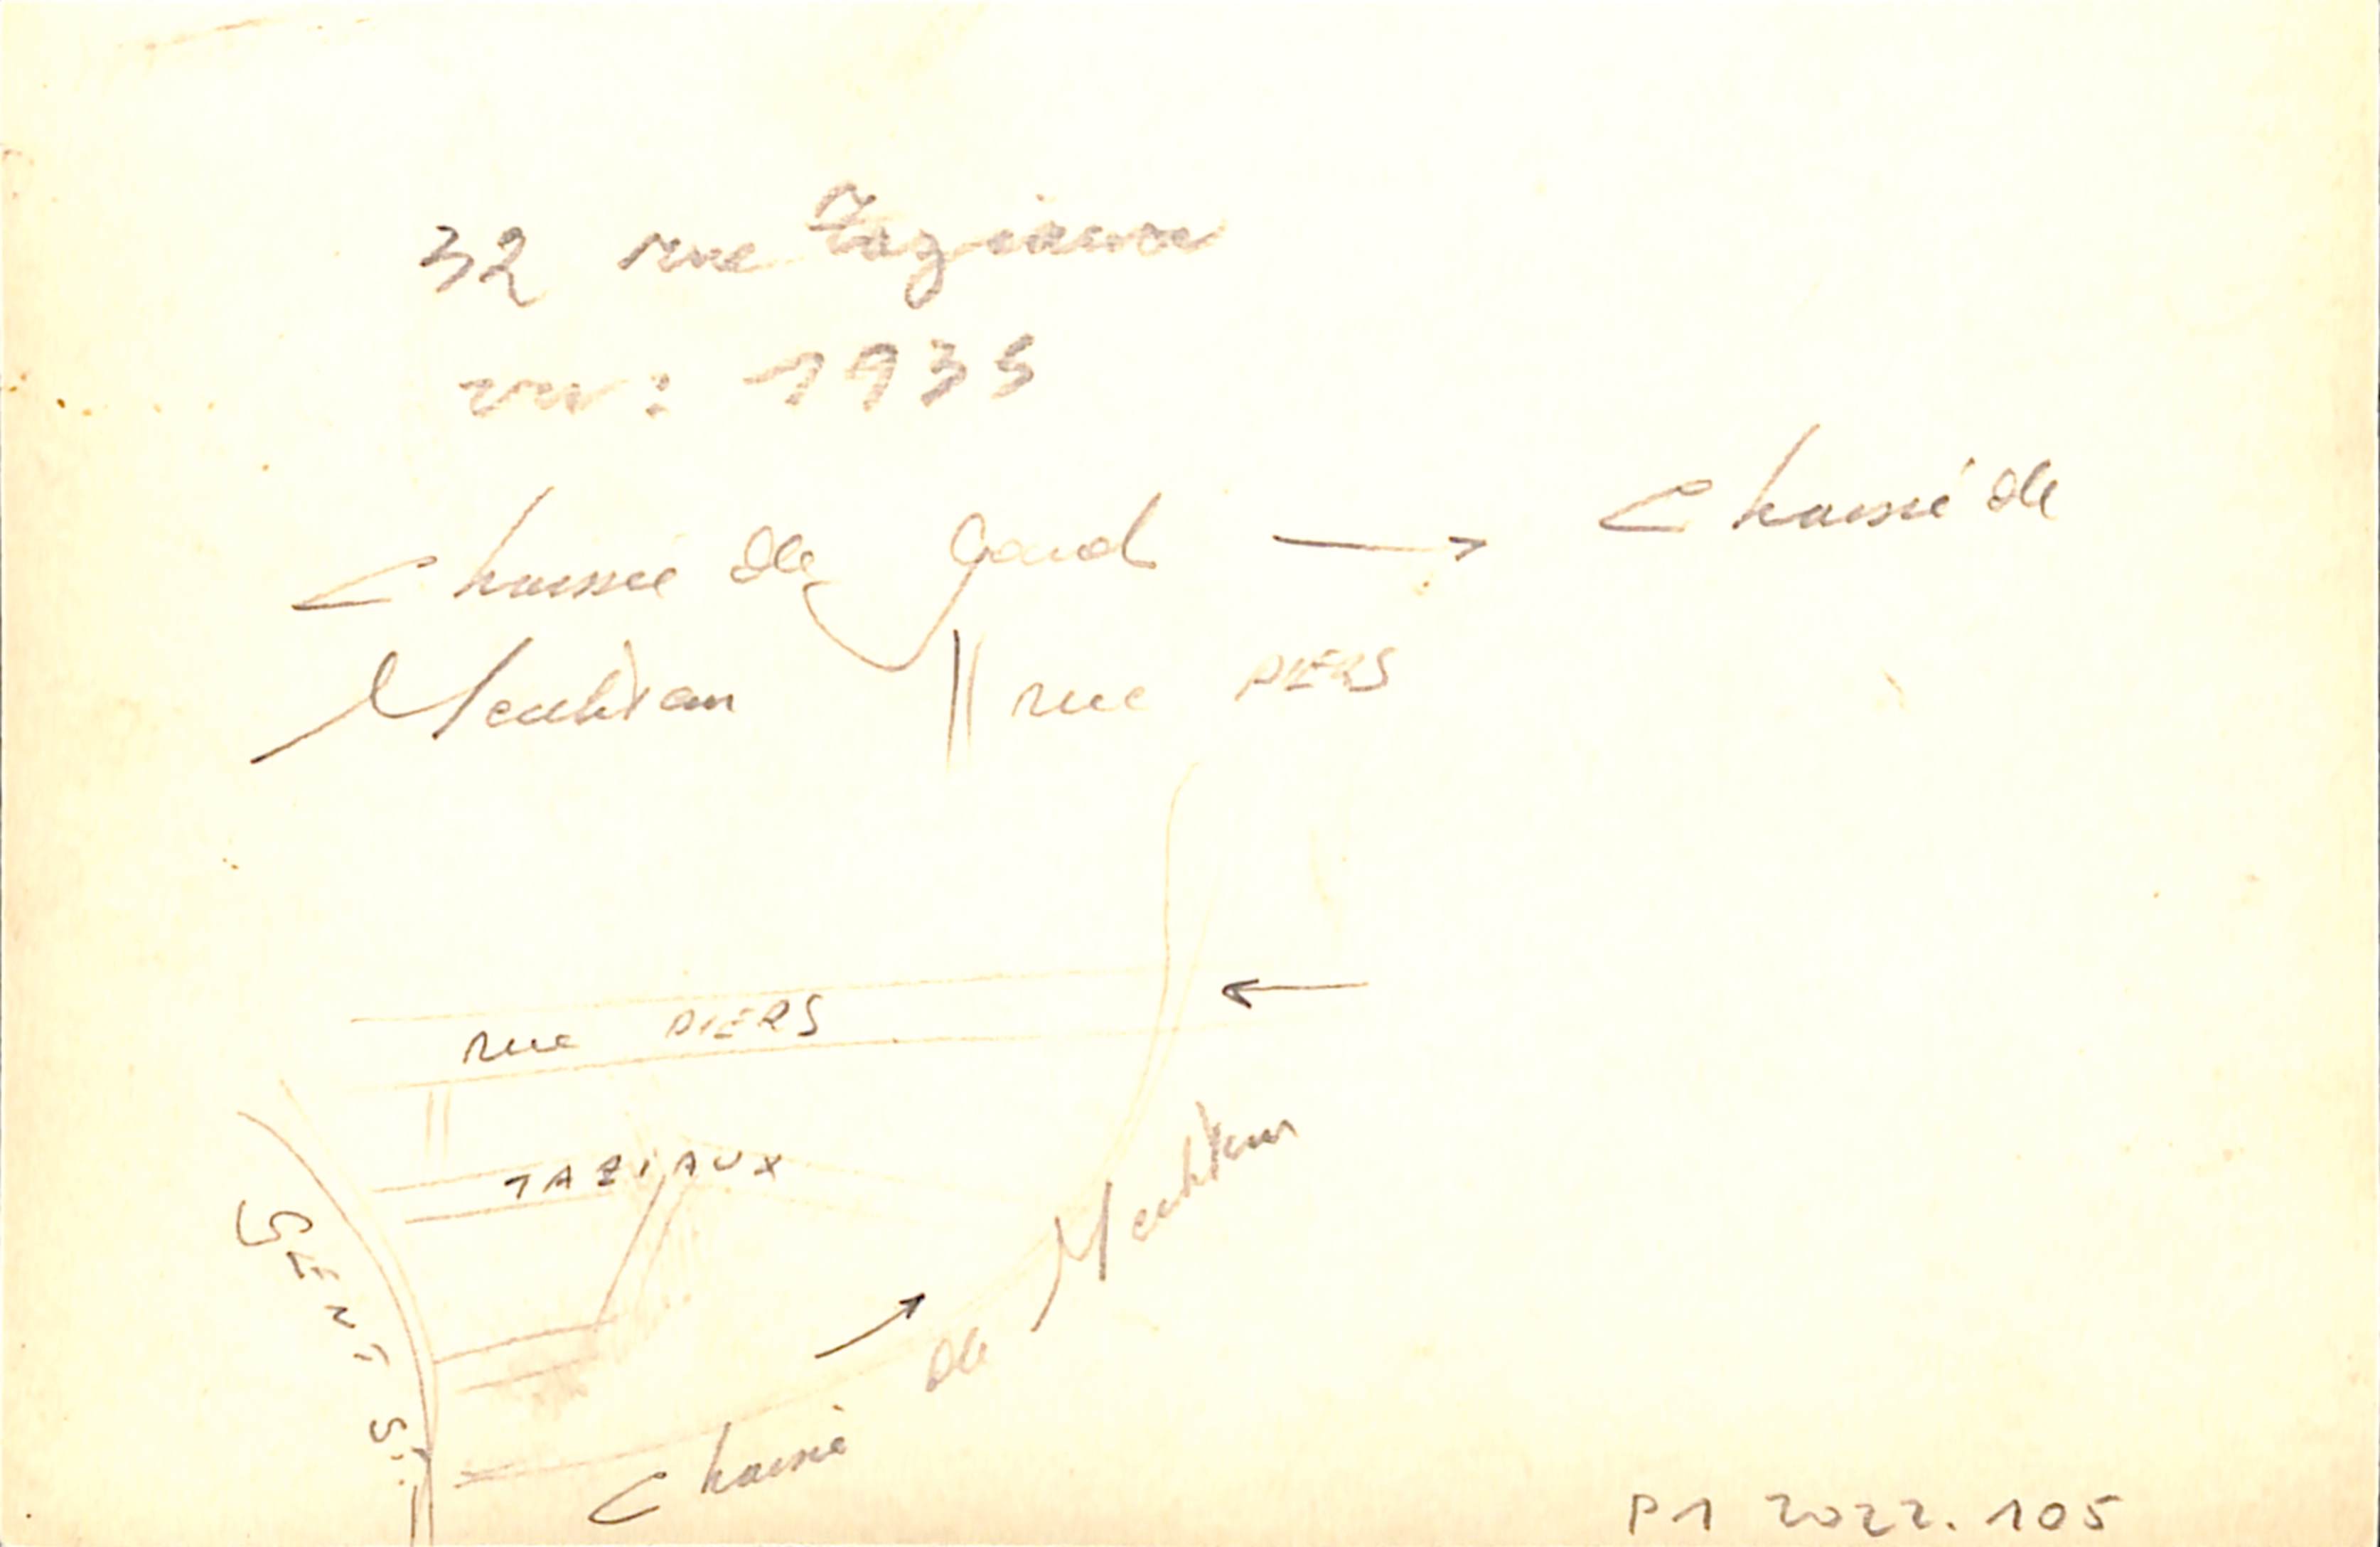 32 rue Taziaux
vu : 1935
Chaussée de Gand → Chaussé de
Merchtem || rue PIERS
rue PIERS
TAZIAUX
Chaussé de Merchtem
P1 2022.105